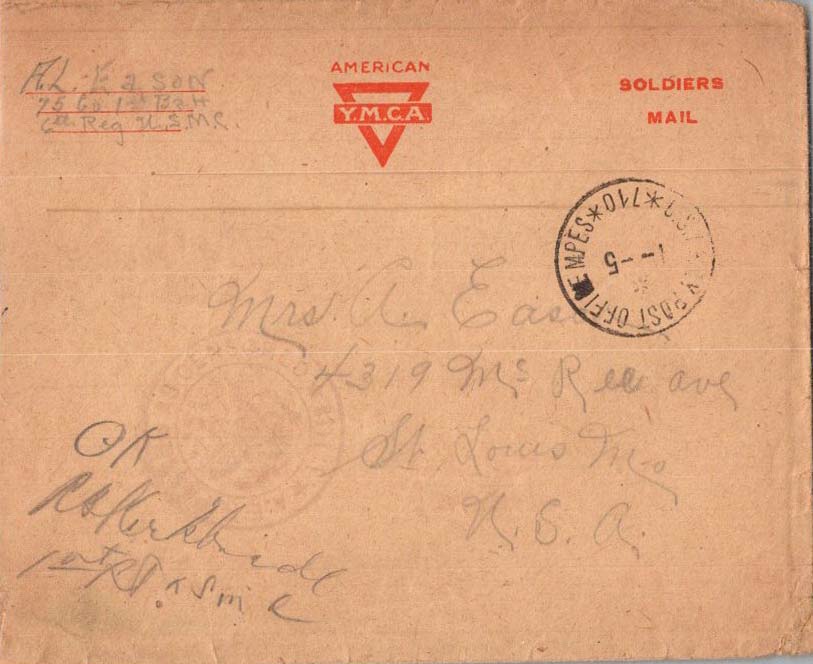 A.L. Eason
75 Co 1st Batt
6th Reg U.S.M.C.
AMERICAN
Y.M.C.A.
SOLDIERS
MAIL
POST OFFICE M.P.E.S. * 710 * U.S.
1--5
Mrs A. Eason
4319 Mc Ree ave
St. Louis Mo
U. S. A.
OK
1st Lt. U S M C